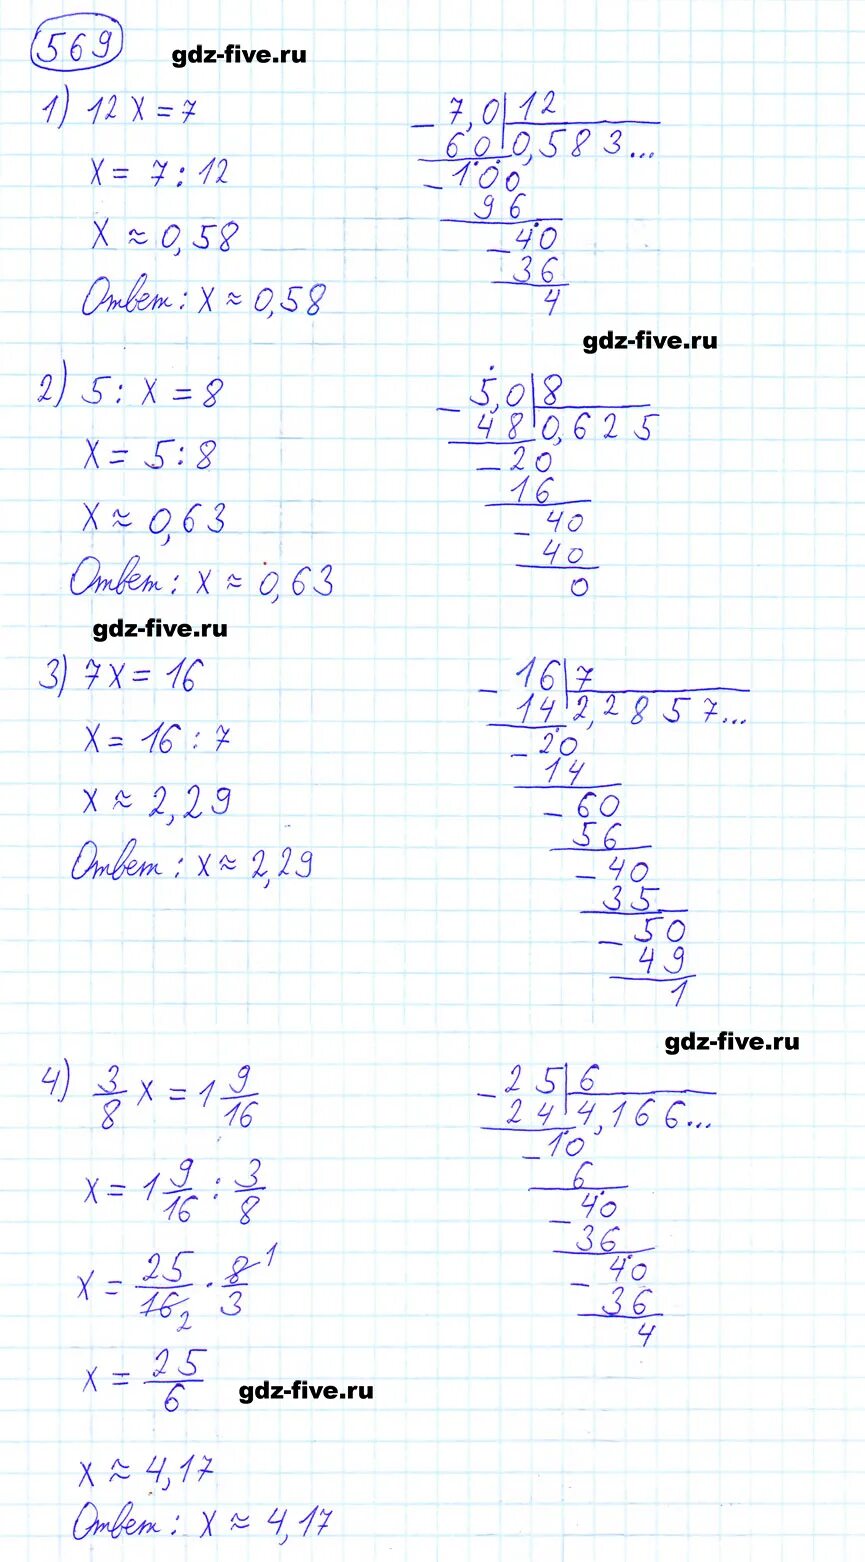 569
gdz-five.ru
1) 12x = 7
x = 7 : 12
x ≈ 0,58
Ответ: x ≈ 0,58
- 7,0 | 12
60 0,583...
- 100
96
- 40
36
4
gdz-five.ru
2) 5 : x = 8
x = 5 : 8
x ≈ 0,63
Ответ: x ≈ 0,63
- 5,0 | 8
48 0,625
- 20
16
- 40
40
0
gdz-five.ru
3) 7x = 16
x = 16 : 7
x ≈ 2,29
Ответ: x ≈ 2,29
- 16 | 7
14 2,2857...
- 20
14
- 60
56
- 40
35
- 50
49
1
gdz-five.ru
4) 3/8 x = 1 9/16
x = 1 9/16 : 3/8
x = 25/16 2 · 8/3 1
x = 25/6
gdz-five.ru
x ≈ 4,17
Ответ: x ≈ 4,17
- 25 | 6
24 4,166...
- 10
6
- 40
36
- 40
36
4